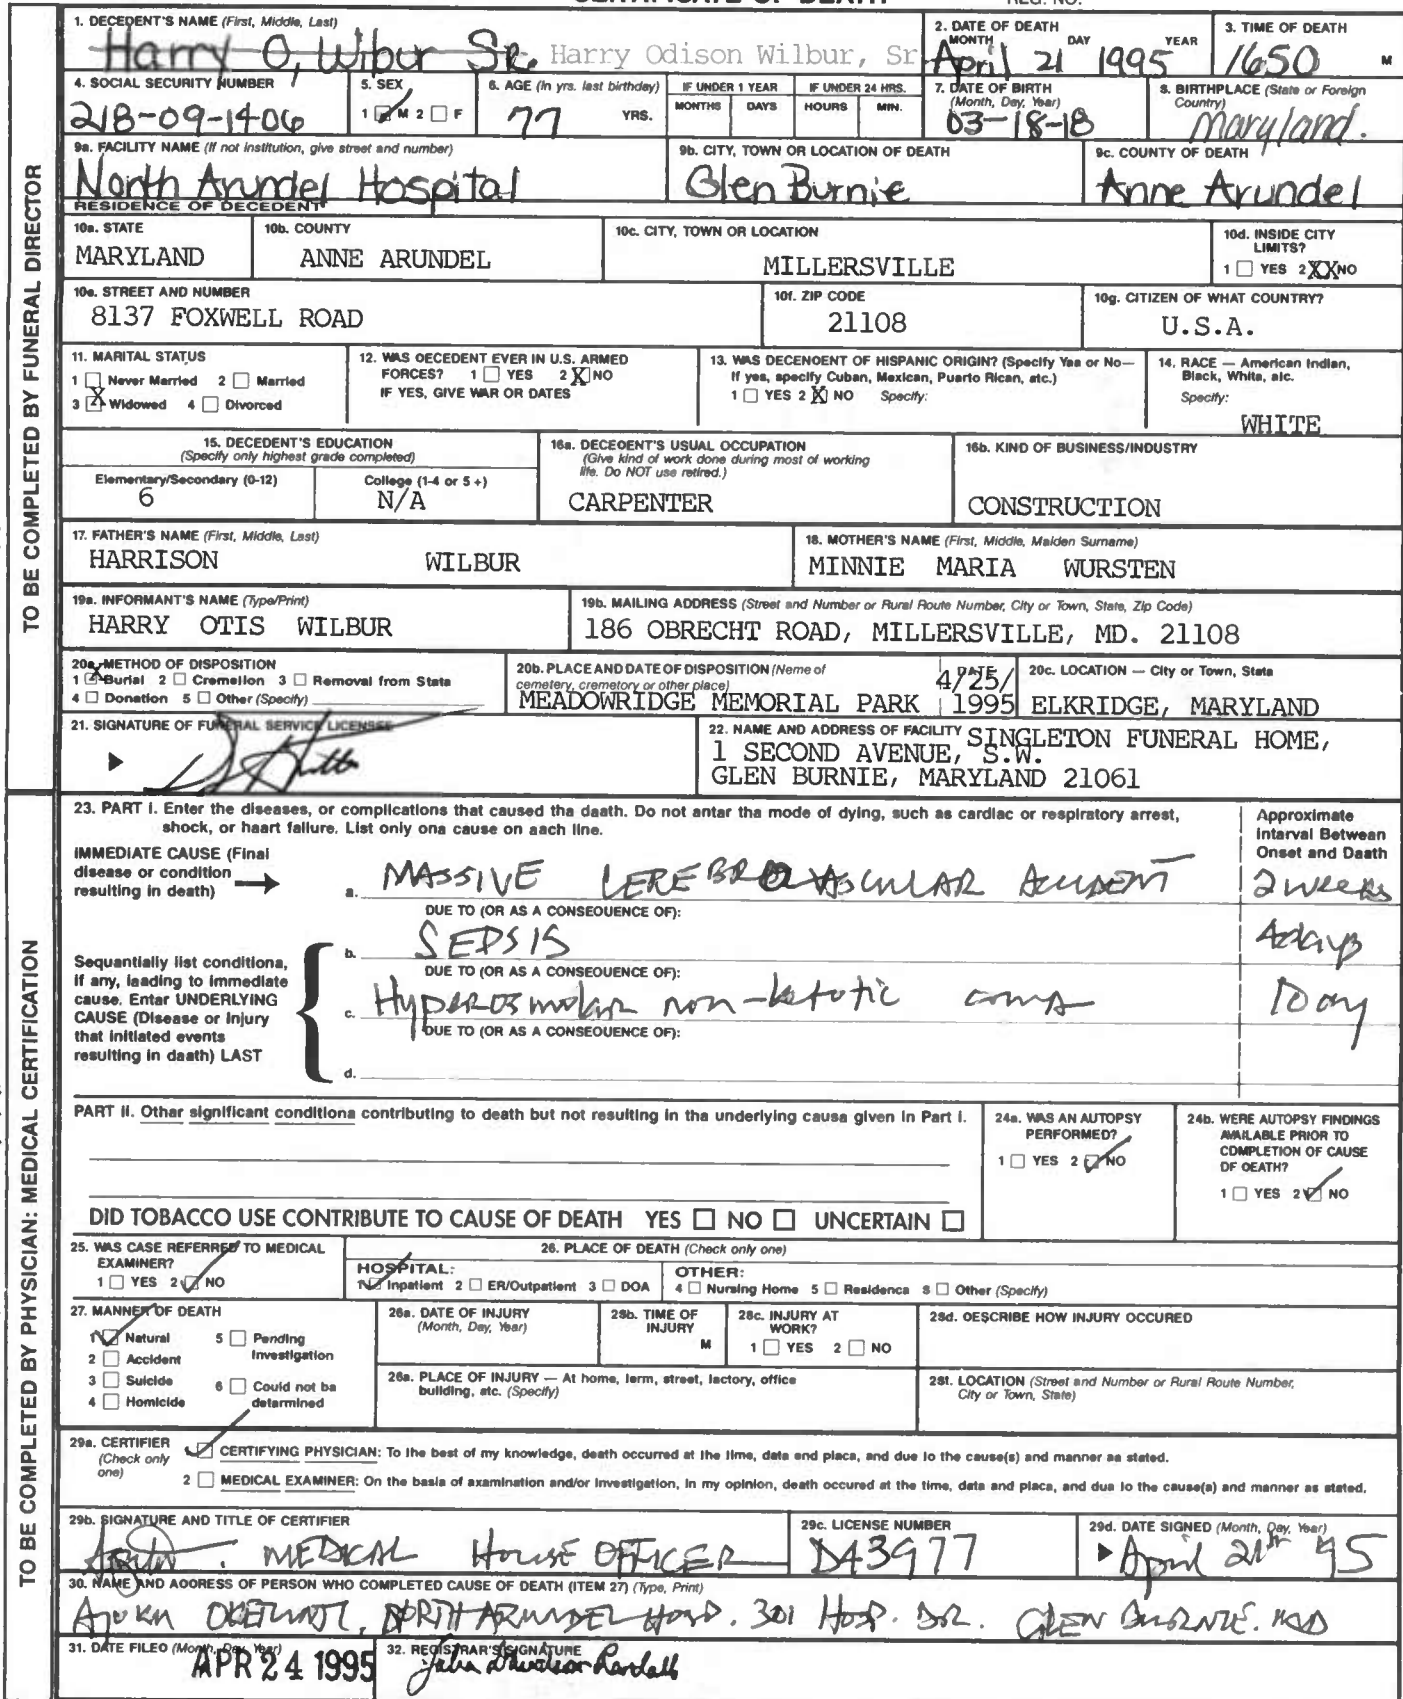 CERTIFICATE OF DEATH REG. NO.
TO BE COMPLETED BY FUNERAL DIRECTOR
1. DECEDENT'S NAME (First, Middle, Last)
Harry O, Wilbur Sr. Harry Odison Wilbur, Sr
2. DATE OF DEATH
MONTH DAY YEAR
April 21 1995
3. TIME OF DEATH
1650 M
4. SOCIAL SECURITY NUMBER
218-09-1406
5. SEX
1 M 2 F
6. AGE (In yrs. last birthday)
77 YRS.
IF UNDER 1 YEAR
MONTHS DAYS
IF UNDER 24 HRS.
HOURS MIN.
7. DATE OF BIRTH
(Month, Day, Year)
03-18-18
8. BIRTHPLACE (State or Foreign
Country)
Maryland.
9a. FACILITY NAME (If not institution, give street and number)
North Arundel Hospital
9b. CITY, TOWN OR LOCATION OF DEATH
Glen Burnie
9c. COUNTY OF DEATH
Anne Arundel
RESIDENCE OF DECEDENT
10a. STATE
MARYLAND
10b. COUNTY
ANNE ARUNDEL
10c. CITY, TOWN OR LOCATION
MILLERSVILLE
10d. INSIDE CITY
LIMITS?
1 YES 2 XX NO
10e. STREET AND NUMBER
8137 FOXWELL ROAD
10f. ZIP CODE
21108
10g. CITIZEN OF WHAT COUNTRY?
U.S.A.
11. MARITAL STATUS
1 Never Married 2 Married
3 X Widowed 4 Divorced
12. WAS OECEDENT EVER IN U.S. ARMED
FORCES? 1 YES 2 X NO
IF YES, GIVE WAR OR DATES
13. WAS DECENOENT OF HISPANIC ORIGIN? (Specify Yea or No—
If yes, specify Cuban, Mexican, Puarto Rican, atc.)
1 YES 2 X NO Specify:
14. RACE — American Indian,
Black, Whita, alc.
Specify:
WHITE
15. DECEDENT'S EDUCATION
(Specify only highest grade completed)
Elementary/Secondary (0-12)
6
College (1-4 or 5 +)
N/A
16a. DECEOENT'S USUAL OCCUPATION
(Give kind of work done during most of working
life. Do NOT use retired.)
CARPENTER
16b. KIND OF BUSINESS/INDUSTRY
CONSTRUCTION
17. FATHER'S NAME (First, Middle, Last)
HARRISON WILBUR
18. MOTHER'S NAME (First, Middle, Maiden Surname)
MINNIE MARIA WURSTEN
19a. INFORMANT'S NAME (Type/Print)
HARRY OTIS WILBUR
19b. MAILING ADDRESS (Street and Number or Rural Route Number, City or Town, State, Zip Code)
186 OBRECHT ROAD, MILLERSVILLE, MD. 21108
20a. METHOD OF DISPOSITION
1 X Burial 2 Cremelion 3 Removal from Stata
4 Donation 5 Other (Specify)
20b. PLACE AND DATE OF DISPOSITION (Neme of
cemetery, cremetory or other place)
MEADOWRIDGE MEMORIAL PARK
DATE
4/25/
1995
20c. LOCATION — City or Town, Stata
ELKRIDGE, MARYLAND
21. SIGNATURE OF FUNERAL SERVICE LICENSEE
22. NAME AND ADDRESS OF FACILITY SINGLETON FUNERAL HOME,
1 SECOND AVENUE, S.W.
GLEN BURNIE, MARYLAND 21061
TO BE COMPLETED BY PHYSICIAN: MEDICAL CERTIFICATION
23. PART I. Enter the diseases, or complications that caused tha daath. Do not antar tha mode of dying, such as cardlac or resplratory arrest,
shock, or haart fallure. List only ona cause on aach line.
Approximate
Intarval Between
Onset and Daath
IMMEDIATE CAUSE (Final
disease or condition
resulting in death)
a. MASSIVE CEREBROVASCULAR ACCIDENT 2 weeks
DUE TO (OR AS A CONSEOUENCE OF):
b. SEPSIS 4 days
DUE TO (OR AS A CONSEOUENCE OF):
c. Hyperosmolar non-ketotic coma 1 Day
DUE TO (OR AS A CONSEOUENCE OF):
d.
Sequantially list conditiona,
if any, laading to immediate
cause. Entar UNDERLYING
CAUSE (Disease or Injury
that initiated events
resulting in daath) LAST
PART II. Othar significant conditiona contributing to death but not resulting in tha underlying causa given in Part I.
24a. WAS AN AUTOPSY
PERFORMED?
1 YES 2 NO
24b. WERE AUTOPSY FINDINGS
AVAILABLE PRIOR TO
COMPLETION OF CAUSE
DF OEATH?
1 YES 2 NO
DID TOBACCO USE CONTRIBUTE TO CAUSE OF DEATH YES NO UNCERTAIN
25. WAS CASE REFERRED TO MEDICAL
EXAMINER?
1 YES 2 NO
26. PLACE OF DEATH (Check only one)
HOSPITAL:
1 Inpatient 2 ER/Outpatient 3 DOA
OTHER:
4 Nursing Home 5 Rasidenca 8 Other (Specify)
27. MANNER OF DEATH
1 Natural 5 Pending
Investigation
2 Accident
3 Suicide 6 Could not ba
4 Homicide datarmined
26a. DATE OF INJURY
(Month, Day, Year)
28b. TIME OF
INJURY
M
28c. INJURY AT
WORK?
1 YES 2 NO
28d. OESCRIBE HOW INJURY OCCURED
26a. PLACE OF INJURY — At home, lerm, street, lactory, office
building, atc. (Specify)
281. LOCATION (Street and Number or Rural Route Number,
City or Town, State)
29a. CERTIFIER
(Check only
one)
CERTIFYING PHYSICIAN: To lhe best of my knowledge, death occurred at the lime, data end placa, and due lo the cause(s) and manner aa stated.
2 MEDICAL EXAMINER: On the basis of axamination and/or Investigation, in my opinion, death occured at the time, data and placa, and dua lo the cause(a) and manner as stated.
29b. SIGNATURE AND TITLE OF CERTIFIER
MEDICAL HOUSE OFFICER
29c. LICENSE NUMBER
D43977
29d. DATE SIGNED (Month, Day, Year)
April 21th 95
30. NAME AND AOORESS OF PERSON WHO COMPLETED CAUSE OF DEATH (ITEM 27) (Type, Print)
NORTH ARUNDEL HOSP. 301 HOSP. DR. GLEN BURNIE. MD
31. DATE FILEO (Month, Day, Year)
APR 24 1995
32. REGISTRAR'S SIGNATURE